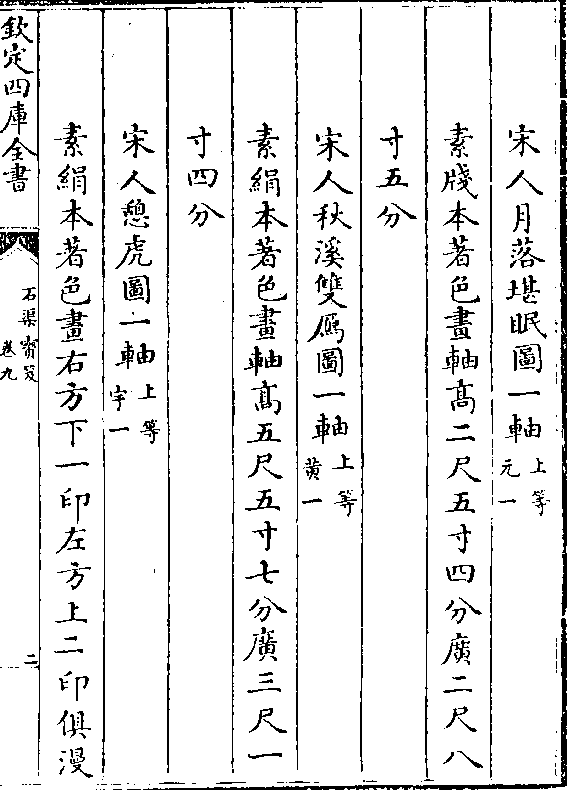 宋人月落堪眠圖一軸上等元一
素牋本著色畫軸髙二尺五寸四分廣二尺八
寸五分
宋人秋溪雙鴈圖一軸上等黄一
素絹本著色畫軸髙五尺五寸七分廣三尺一
寸四分
宋人憩虎圖一軸上等宇一
素絹本著色畫右方下一印左方上二印俱漫
欽定四庫全書
石渠寳笈
卷九
二